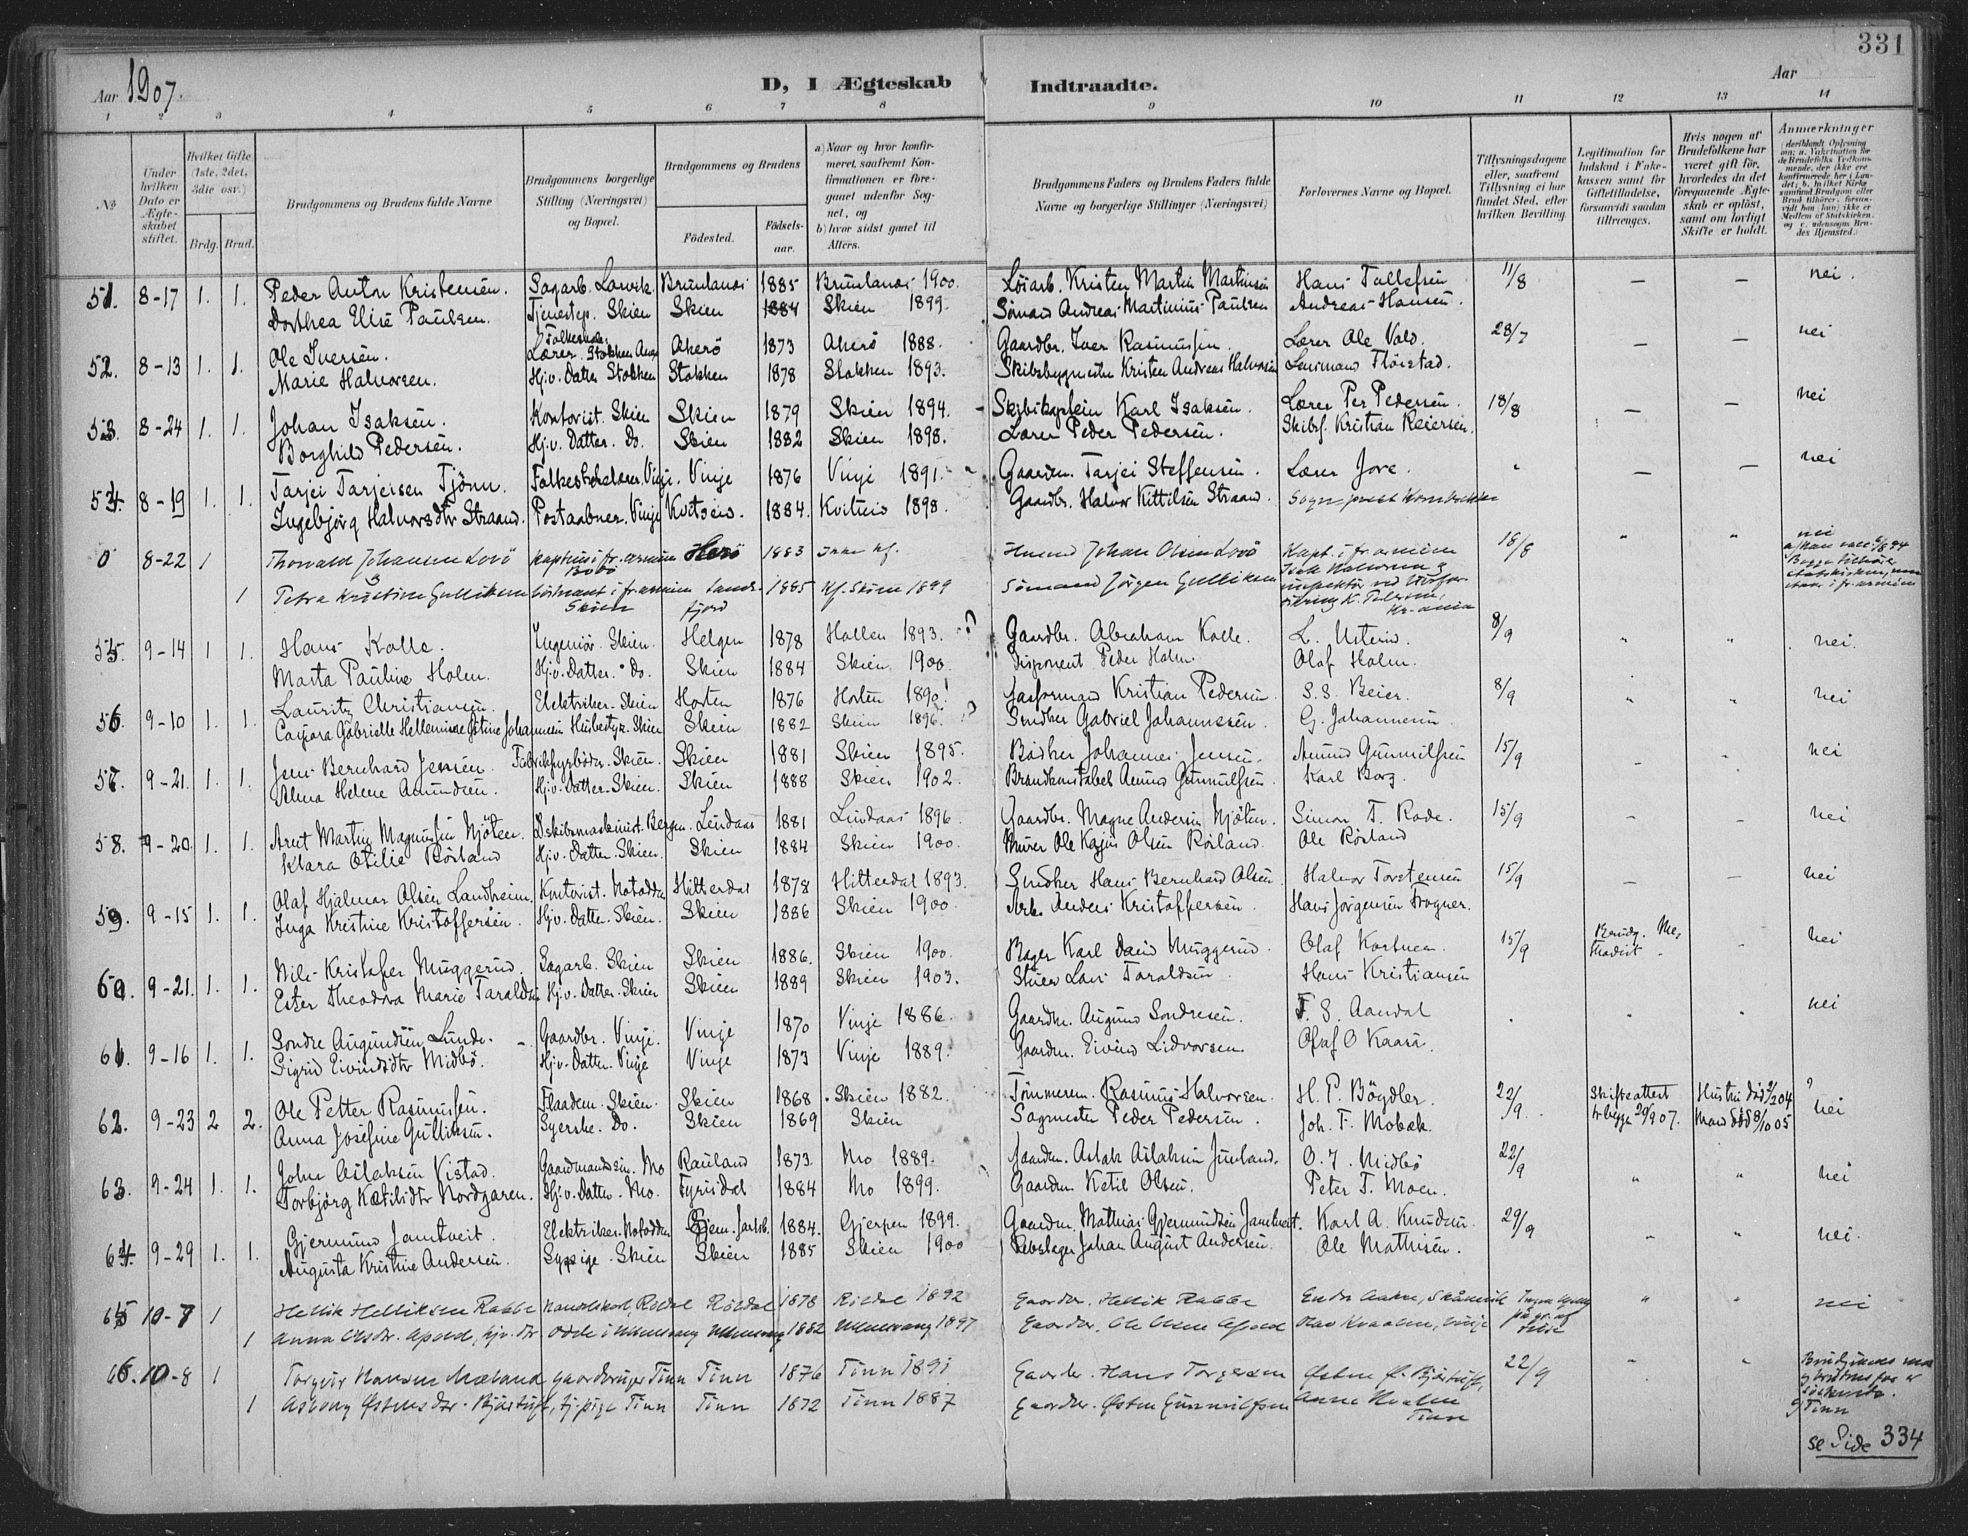 331
Aar 1907.
D, I Ægteskab Indtraadte.
Aar
1 2 3 4 5 6 7 8 9 10 11 12 13 14
№
Under hvilken Dato er Ægteskabet stiftet.
Hvilket Gifte (1ste, 2det, 3die osv.)
Brdg. Brud.
Brudgommens og Brudens fulde Navne
Brudgommens borgerlige Stilling (Næringsvei) og Bopæl.
Brudgommens og Brudens
Fødested. Fødselsaar.
a) Naar og hvor konfirmeret, saafremt Konfirmationen er foregaaet udenfor Sognet, og
b) hvor sidst gaaet til Alters.
Brudgommens Faders og Brudens Faders fulde Navne og borgerlige Stillinger (Næringsvei)
Forlovernes Navne og Bopæl.
Tillysningsdagene eller, saafremt Tillysning ei har fundet Sted, efter hvilken Bevilling.
Legitimation for Indskud i Enkekassen samt for Giftetilladelse, forsaavidt saadan tiltrænges.
Hvis nogen af Brudefolkene har været gift før, hvorledes da det foregaaende Ægteskab er opløst, samt om lovligt Skifte er holdt.
Anmærkninger
51. 8-17 1. 1. Peder Anton Kristensen. Sagarb. Larvik Brunlanes 1885 Brunlanes 1900. Løsarb. Kristen Martin Martinsen Hans Tollefsen 11/8 — — nei.
Dorthea Elise Paulsen. Tjenestep. Skien Skien 1884 Skien 1899. Sømand Andreas Martinius Paulsen Andreas Hansen.
52. 8-13 1. 1. Ole Iversen. Folkeskolelærer. Stokken Akerø 1873 Akerø 1888. Gaardbr. Iver Rasmussen. Lærer Ole Vold. 28/7 — — nei
Marie Halvorsen. Hj.v. Datter Stokken Stokken 1878 Stokken 1893. Skibsbygmester Kristen Andreas Halvorsen Lensmand Fløistad.
53. 8-24 1. 1. Johan Isaksen. Kontorist. Skien Skien 1879 Skien 1894. Skibskaptein Karl Isaksen. Lærer Per Pedersen. 18/8 — — nei
Borghild Pedersen. Hj.v. Datter. Do. Skien 1882 Skien 1898. Lærer Peder Pedersen. Skibsf. Kristian Reiersen.
54. 8-19 1. 1. Tarjei Tarjeisen Tjønn. Folkeskolelærer. Vinje. Vinje 1876 Vinje 1891. Gaardm. Tarjei Steffensen. Lærer Jore. " — — nei
Ingebjørg Halvorsdtr Straand. Postaabner. Vinje Kvitseis. 1884. Kviteseis 1898. Gaardbr. Halvor Kittilsen Straand. Sogneprest
0 8-22 1 Thorvald Johansen Lovø kaptein i fr.armeen Bodø Herø 1883 Ikke kf. Johan Olsen Lovø Kapt. i fr.armeen 18/8 " " nei
1 Petra Kristine Gulliksen løitnant i fr.armeen Skien Sandefjord 1885 kf. Skien 1899 Sømand Jørgen Gulliksen
55. 9-14 1 1. Hans Kolle. Ingeniør. Skien. Helgen 1878 Hollen 1893. Gaardbr. Abraham Kolle. 8/9 " " nei.
Marta Pauline Holm. Hj.v. Datter. Do. Skien 1884 Skien 1900. Disponent Peder Holm. Olaf Holm.
56 9-10 1. 1. Lauritz Christiansen. Elektriker. Skien Horten 1876 Horten 1890. Kristian Pedersen. S. S. Beier. 8/9 " " nei
Caspara Gabrielle Hellemine Gitine Johannesen Husbestyr. Skien Skien 1882 Skien 1896. Snedker Gabriel Johannessen. G. Johannesen
57. 9-21. 1. 1. Jens Bernhard Jensen. Fabrikfyrbøder. Skien. Skien 1881 Skien 1895. Bødker Johannes Jensen. Amund Gunnulfsen 15/9 — " nei
Alma Helene Amundsen. Hj.v. Datter. Skien. Skien 1888 Skien 1902. Brandkonstabel Amund Gunnulfsen Karl Borg.
58. 9-20. 1. 1. Arnt Martin Magnussen Mjøtzen. Dskibsmaskinist. Bergen. Lindaas 1881 Lindaas 1896. Gaardbr. Magne Andersen Mjøten. Simon T. Rode. 15/9 " " nei
Klara Otilie Rørland Hj.v. Datter. Skien. Skien 1884 Skien 1900. Murer Ole Kajus Olsen Rørland. Ole Rørland
59. 9-15 1. 1. Olaf Hjalmar Olsen Landheim. Kontorist. Notodden Hitterdal 1878 Hitterdal 1893. Snedker Hans Bernhard Olsen. Halvor Torstensen 15/9 — — nei
Inga Kristine Kristoffersen. Hj.v. Datter. Skien. Skien 1886 Skien 1900. Arb. Anders Kristoffersen. Hans Jørgensen Frogner.
60. 9-21. 1. 1. Nils Kristofer Muggerud. Sagarb. Skien Skien 1886. Skien 1900. Bager Karl David Muggerud. Olaf Kortner. 15/9 Brudg. Methodist. nei
Ester Theodora Marie Taraldsen Hj.v. Datter. Skien Skien 1889 Skien 1903. Stuer Lars Taraldsen. Hans Kristiansen
61. 9-16 1. 1. Sondre Augundsen Lunde. Gaardbr. Vinje. Vinje 1870 Vinje 1886. Gaardbr. Augund Sondresen. T. S. Aandal . " " nei
Sigrid Eivindsdtr Midbø. Hj.v. Datter. Vinje Vinje 1873 Vinje 1889. Gaardm. Eivind Lidvorsen. Olaf O Kaasa.
62. 9-23 2 2. Ole Petter Rasmussen. Flaadem. Skien. Skien 1868 Skien 1882. Tømmerm. Rasmus Halvorsen. H. P. Bøgdler. 22/9. Skifteattest Hustru død 2/2 04 ? nei
Anna Josefine Gulliksen. Syerske. Do. Skien 1869 Skien Sagmester Peder Pedersen. Joh. F. Mobæk. for begge 20/9 07. Mand død 8/10 05
63. 9-24 1. 1. John Aslaksen Vistad. Gaardmandssøn. Mo Rauland 1873. Mo 1889. Gaardm. Aslak Aslaksen Juvland. O. J. Midbø 22/9 " " nei
Torbjørg Kætilsdtr Nordgaren. Hj.v. Datter. Mo. Fyrisdal 1884 Mo 1899. Gaardm. Ketil Olsen. Peter T. Moen.
64. 9-29 1. 1. Gjermund Jamtveit. Elektriker. Notodden Gjerp. Jarlsb. 1884. Gjerpen 1899. Gaardm. Mathias Gjermundsen Jamtveit. Karl A. Knudsen. 29/9 " " nei.
Augusta Kristine Andersen. Sypige. Skien Skien 1885 Skien 1900 Rebslager Johan August Andersen. Ole Mathisen.
65 10-7 1 Hellik Helliksen Rabbe Handelskarl, Røldal Røldal 1878 Røldal 1892 Gaardbr. Hellik Rabbe " " nei
1 Anna Olsdr. Apold, hjv. dr Odde i Ullensvang Ullensvang 1882 Ullensvang 1897 Gaardbr. Ole Olsen Apold Olav Kvaalen, Vinje
66. 10-8 1 Torgeir Hansen Mæland gaardbruger Tinn Tinn 1876 Tinn 1891 Gaardbr. Hans Torgersen Østen Ø. Bjørtuft, 22/9 " "
1 Østensdr. Bjørtuft, tj.pige Tinn Tinn 1872 Tinn 1887 Gaardbr. Østen Gunnulfsen Anne Tinn
se Side 334